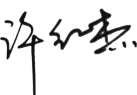 许红杰